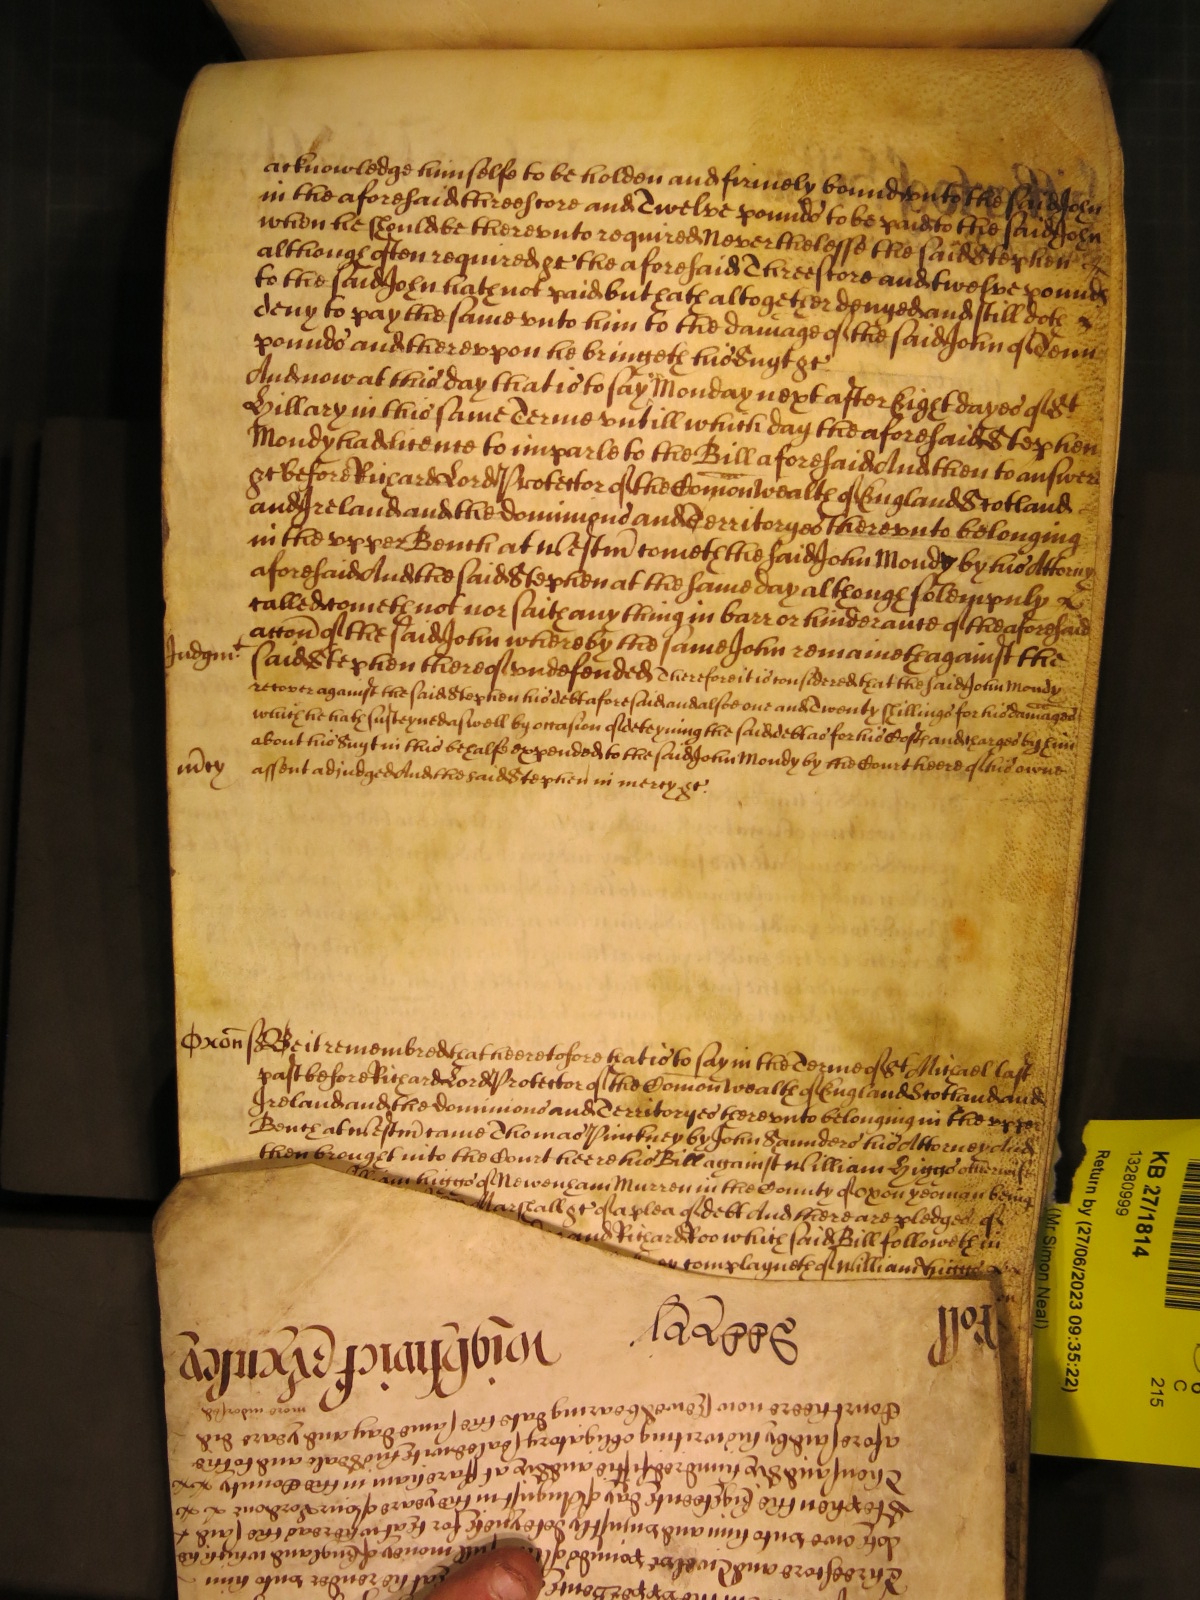 acknowledge himselfe to be holden and firmely bound unto the said John
in the aforesaid threescore and Twelve pounds to be paid to the said John
when he should be thereunto required Neverthelesse the said Stephen
although often required &c the aforesaid Threescore and twelve pounds
to the said John hath not paid but hath altogether denyed and still doth
deny to pay the same unto him to the damage of the said John of Tenn
pounds and thereuppon he bringeth his Suyt &c
And now at this day that is to say Monday next after Eight dayes of St
Hillary in this same Terme untill which day the aforesaid Stephen
Mondy had licence to imparle to the Bill aforesaid And then to answer
&c before Richard Lord Protector of the Comon Wealth of England Scotland
and Ireland and the dominions and Territoryes thereunto belonging
in the upper Bench at Westm cometh the said John Mondy by his Attorny
aforesaid And the said Stephen at the same day although solempnly
called cometh not nor saith any thing in barr or hinderance of the aforesaid
accon of the said John whereby the same John remaineth against the
Judgmt
said Stephen thereof undefended Therefore it is considered that the said John Mondy
recover against the said Stephen his debt aforesaid and alsoe one and Twenty shillings for his damages
which he hath susteyned aswell by occasion of deteyning the said debt as for his Costs and charges by him
about his Suyt in this behalfe expended to the said John Mondy by the Court heere of his owne
mcy
assent adjudged And the said Stephen in mercy &c
Oxon ss Be it remembred that heeretofore that is to say in the Terme of St Michael last
past before Richard Lord Protector of the Comon Wealth of England Scotland and
Ireland and the dominions and Territoryes thereunto belonging in the upper
Bench at Westm came Thomas Pinckney by John Saunders his Attorney And
then brought into the Court heere his Bill against William Higgs otherwise
higgs of Newenham Murren in the County of Oxon yeoman being
Marshall &c of a plea of debt And there are pledges of
and Richard Roo which said Bill followeth in
complayneth of William Higgs
Roll
Wightwick
more indorsed
Court heere now shewed bearing date the same day and yeare did
aforesaid by his writing obligatory sealed with his seale and to the
Thousand six hundred fifty and six at Fareham in the County
Stephen the Eighteenth day of August in the yeare of our Lord one
doth owe unto him and unjustly deteyneth for that whereas the said
Threescore and Twelve pounds of money of England which he
he render unto him
KB 27/1814
13280999
Return by (27/06/2023 09:35:22)
(Mr Simon Neal)
C
215